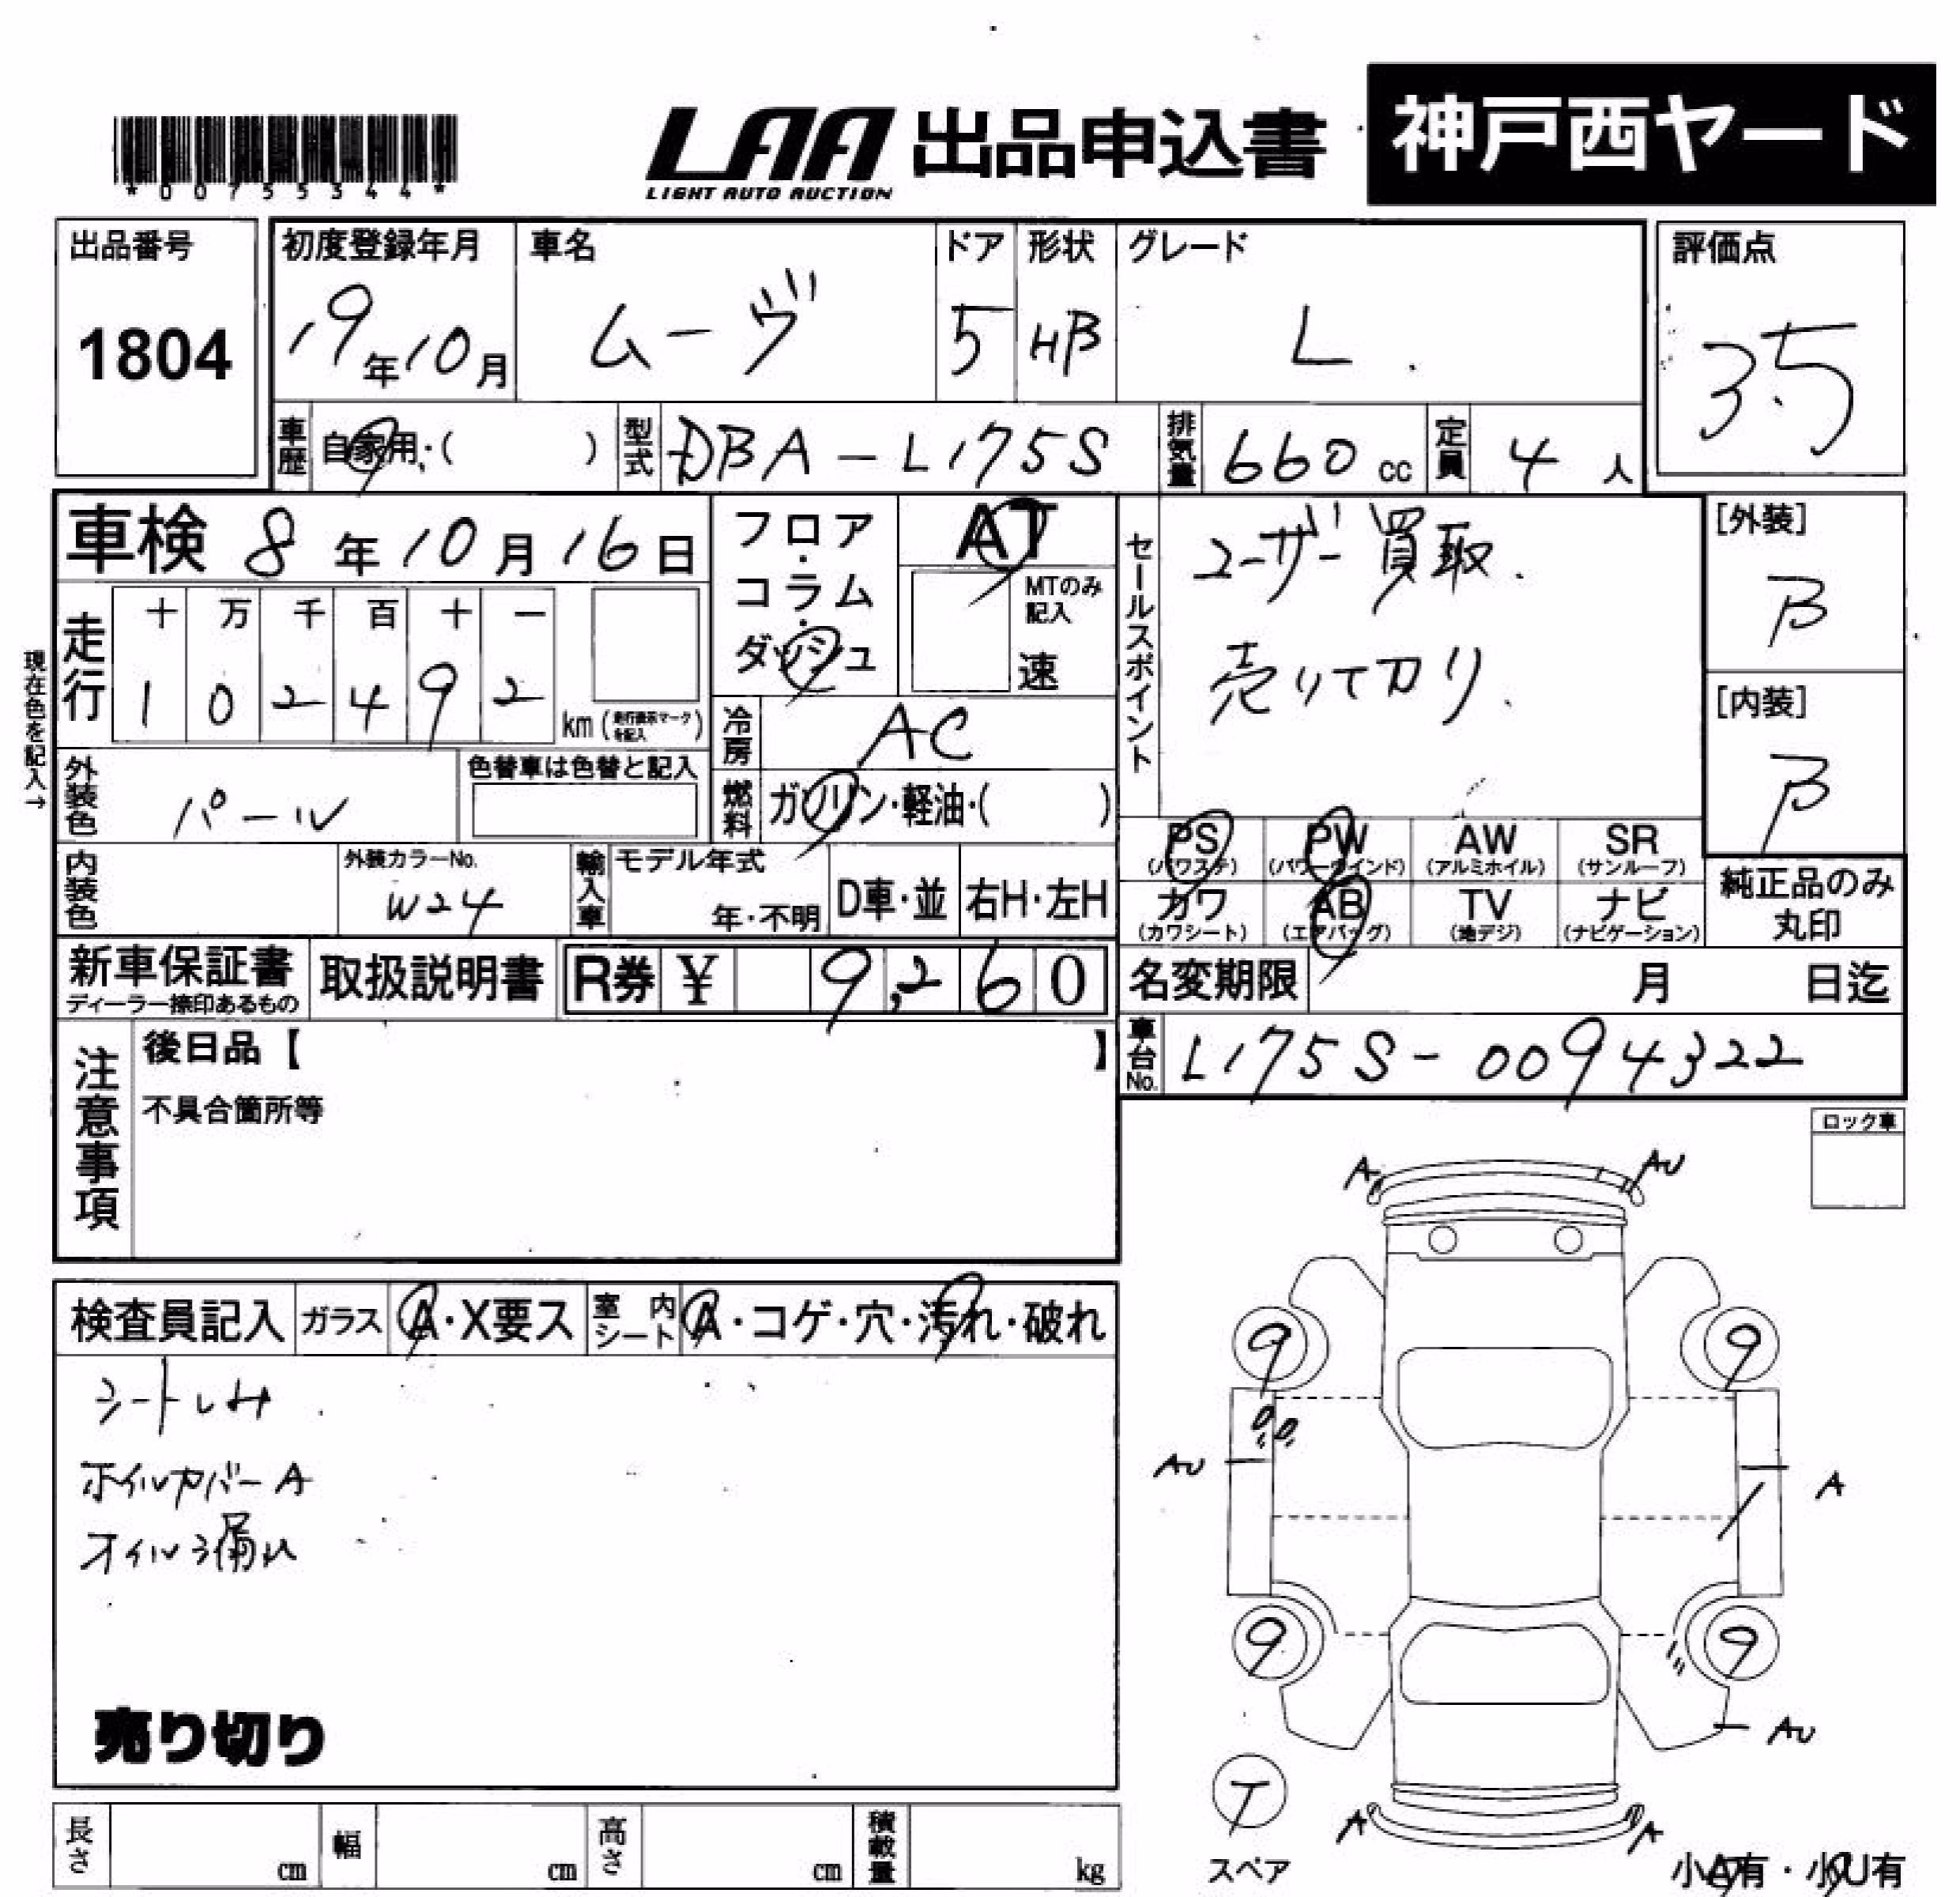 *00755344*
LAA LIGHT AUTO AUCTION 出品申込書 神戸西ヤード
出品番号 1804
初度登録年月 19年10月
車名 ムーヴ
ドア 5
形状 HB
グレード L
評価点 3.5
車歴 自家用・( )
型式 DBA-L175S
排気量 660cc
定員 4人
車検 8年10月16日
フロア・コラム・ダッシュ
AT
MTのみ記入
速
セールスポイント
ユーザー買取.
売りて刀り.
[外装]
B
[内装]
B
現在色を記入→
走行 十 万 千 百 十 一
1 0 2 4 9 2 km(走行表示マークを記入)
冷房 AC
外装色 パール
色替車は色替と記入
燃料 ガソリン・軽油・( )
PS (パワステ) PW (パワーウインド) AW (アルミホイル) SR (サンルーフ)
カワ (カワシート) AB (エアバッグ) TV (地デジ) ナビ (ナビゲーション)
純正品のみ丸印
内装色
外装カラーNo. W24
輸入車 モデル年式 年・不明 D車・並 右H・左H
新車保証書 ディーラー捺印あるもの 取扱説明書 R券 ¥ 9,260
名変期限 月 日迄
車台No. L175S-0094322
注意事項
後日品【 】
不具合箇所等
ロック車
検査員記入 ガラス A・X要ス 室内シート A・コゲ・穴・汚れ・破れ
シートしみ
ホイルカバーA
オイル漏れ
売り切り
A AU
9 9
AU A
9 9
AU
T
スペア
A A
小A有・小U有
長さ cm 幅 cm 高さ cm 積載量 kg